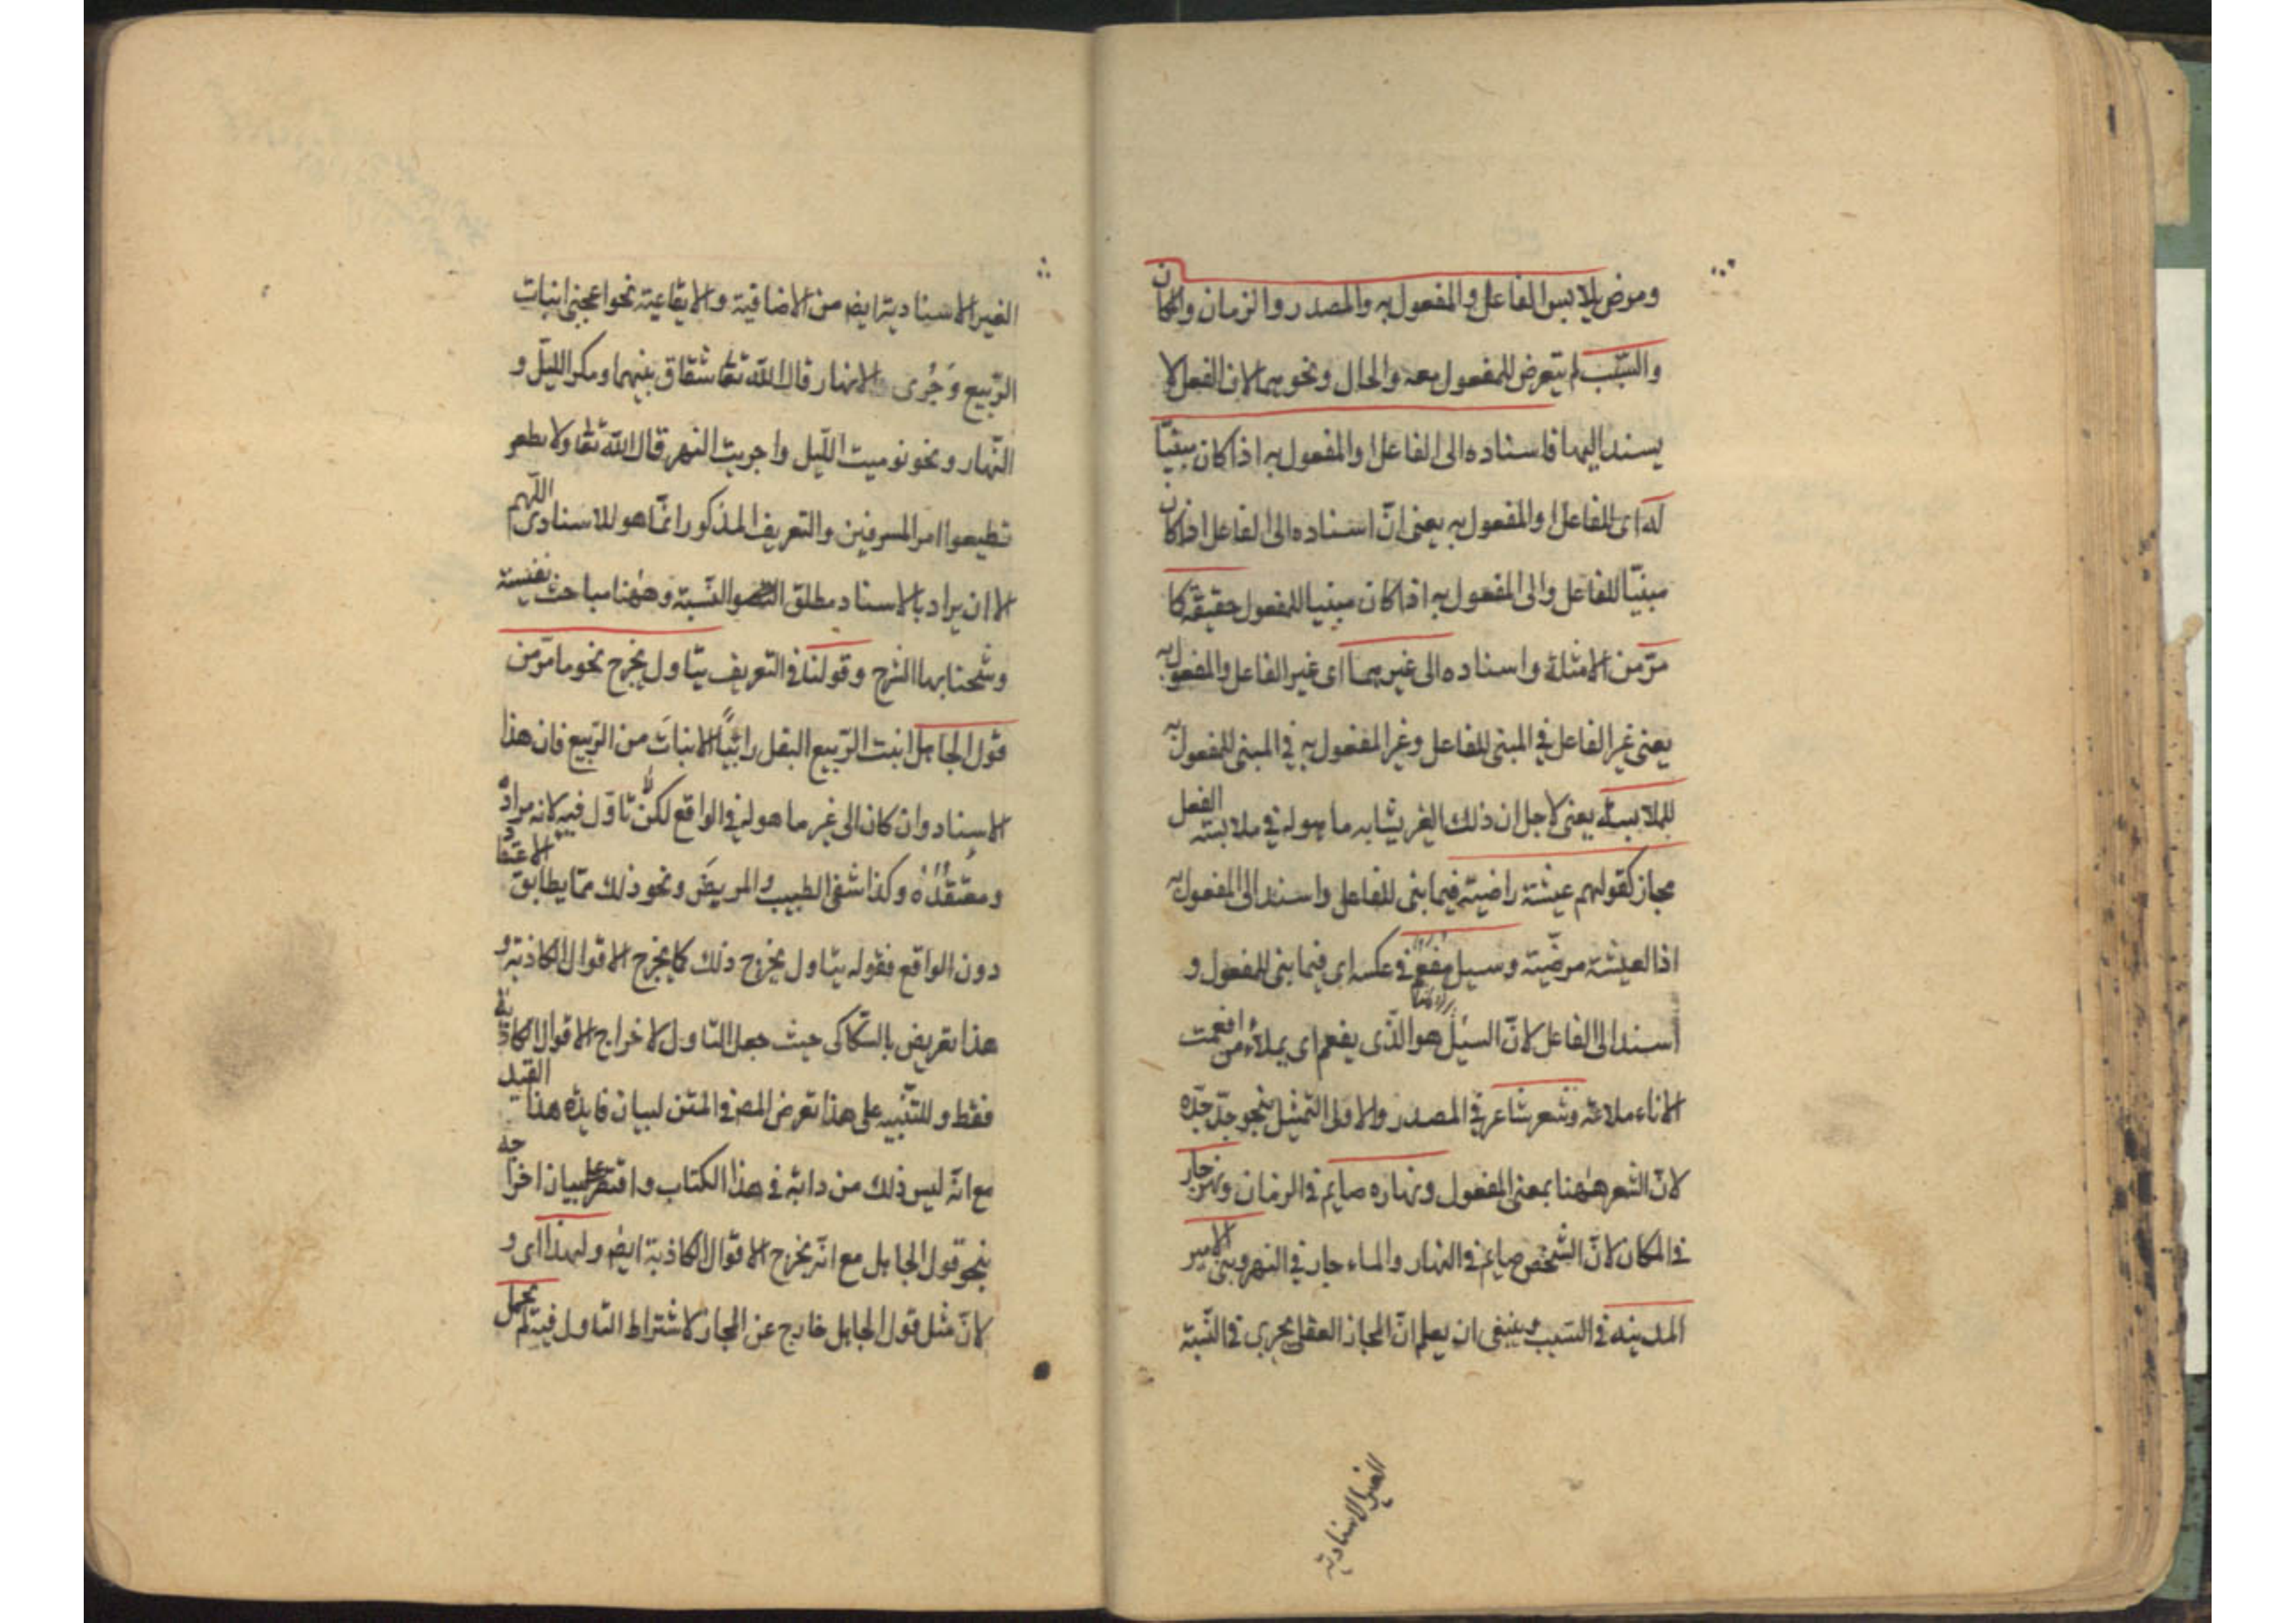 ومرض يلابس الفاعل والمفعول به والمصدر والزمان والمكان
والسبب لم يتعرض للمفعول معه والحال ونحوهما لان الفعل لا
يسند اليها فاسناده الى الفاعل او المفعول به اذا كان مبنيّا
له اى للفاعل او المفعول به يعنى انّ اسناده الى الفاعل اذا كان
مبنيّا للفاعل والى المفعول به اذا كان مبنيا للمفعول حقيقة كا
مرّ من الامثلة واسناده الى غيرهما اى غير الفاعل والمفعول به
يعنى غير الفاعل فى المبنى للفاعل وغير المفعول به فى المبنى للمفعول به
للملابسة يعنى لاجل ان ذلك الغير يشابه ما هو له فى ملابسته الفعل
مجاز كقولهم عيشة راضية فيما بنى للفاعل واسند الى المفعول به
اذ العيشة مرضيّة وسيل مفعم فى عكسه اى فيما بنى للمفعول و
اسند الى الفاعل لانّ السيل هو الّذى يفعم اى يملأ من افعمت
الاناء ملاءته وشعر شاعر فى المصدر والاولى التمثيل بنحو جدّ جدّه
لانّ الشعر ههنا بمعنى المفعول ونهاره صايم فى الزمان ونهر جار
فى المكان لانّ الشخص صايم فى النهار والماء جار فى النهر وبنى الامير
المدينه فى السبب وينبغى ان يعلم انّ المجاز العقلى يجرى فى النّسبة
الغير الاسنادية
الغير الاسنادية ايض من الاضافية والايقاعية نحو اعجبنى انبات
الرّبيع وَجُرى الانهار قال الله تعا شقاق بينهما ومكر اللّيل و
النّهار ونحو نوميت اللّيل واجريت النهر قال الله تعا ولا
تطيعوا امر المسرفين والتعريف المذكور انّما هو للاسنادى اللّهم
الا ان يراد بالاسناد مطلق النّسبة وههنا مباحث نفيسة
وشّحنا بها الشرح وقولنا فى التعريف بتاول يخرج نحو ما مرّ من
قول الجاهل انبت الرّبيع البقل رائيًا الانباتَ من الرّبيع فان هذا
الاسناد وان كان الى غير ما هو له فى الواقع لكن لا تاوّل فيه لانه مراده
ومعتقده وكذا شفى الطبيب المريضَ ونحو ذلك ممّا يطابق الاعتقاد
دون الواقع فقوله بتاول يخرج ذلك كا يخرج الاقوال الكاذبة و
هذا تعريض بالسّكاكى حيث جعل التاول لاخراج الاقوال الكاذبة
فقط وللتّنبيه على هذا تعرض المص فى المتن لبيان فايدة هذا القيد
مع انّه ليس ذلك من دابه فى هذا الكتاب واقتصر على بيان اخراجه
بنحو قول الجاهل مع انّه يخرج الاقوال الكاذبة ايض ولهذا اى و
لانّ مثل قول الجاهل خارج عن المجاز لاشتراط التاول فيه لم يحمل